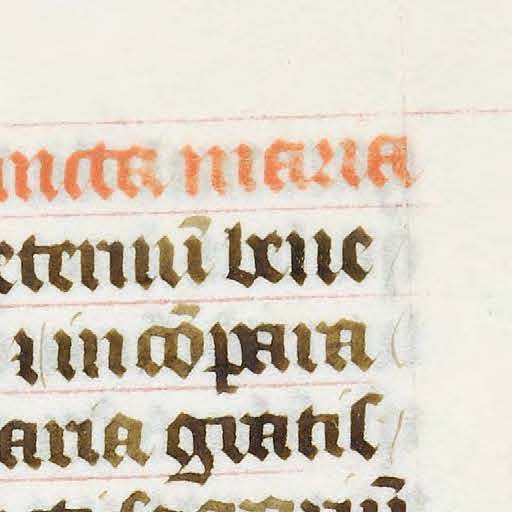 ncta maria
eternū bene
⁊ in cōpara
aria gratis